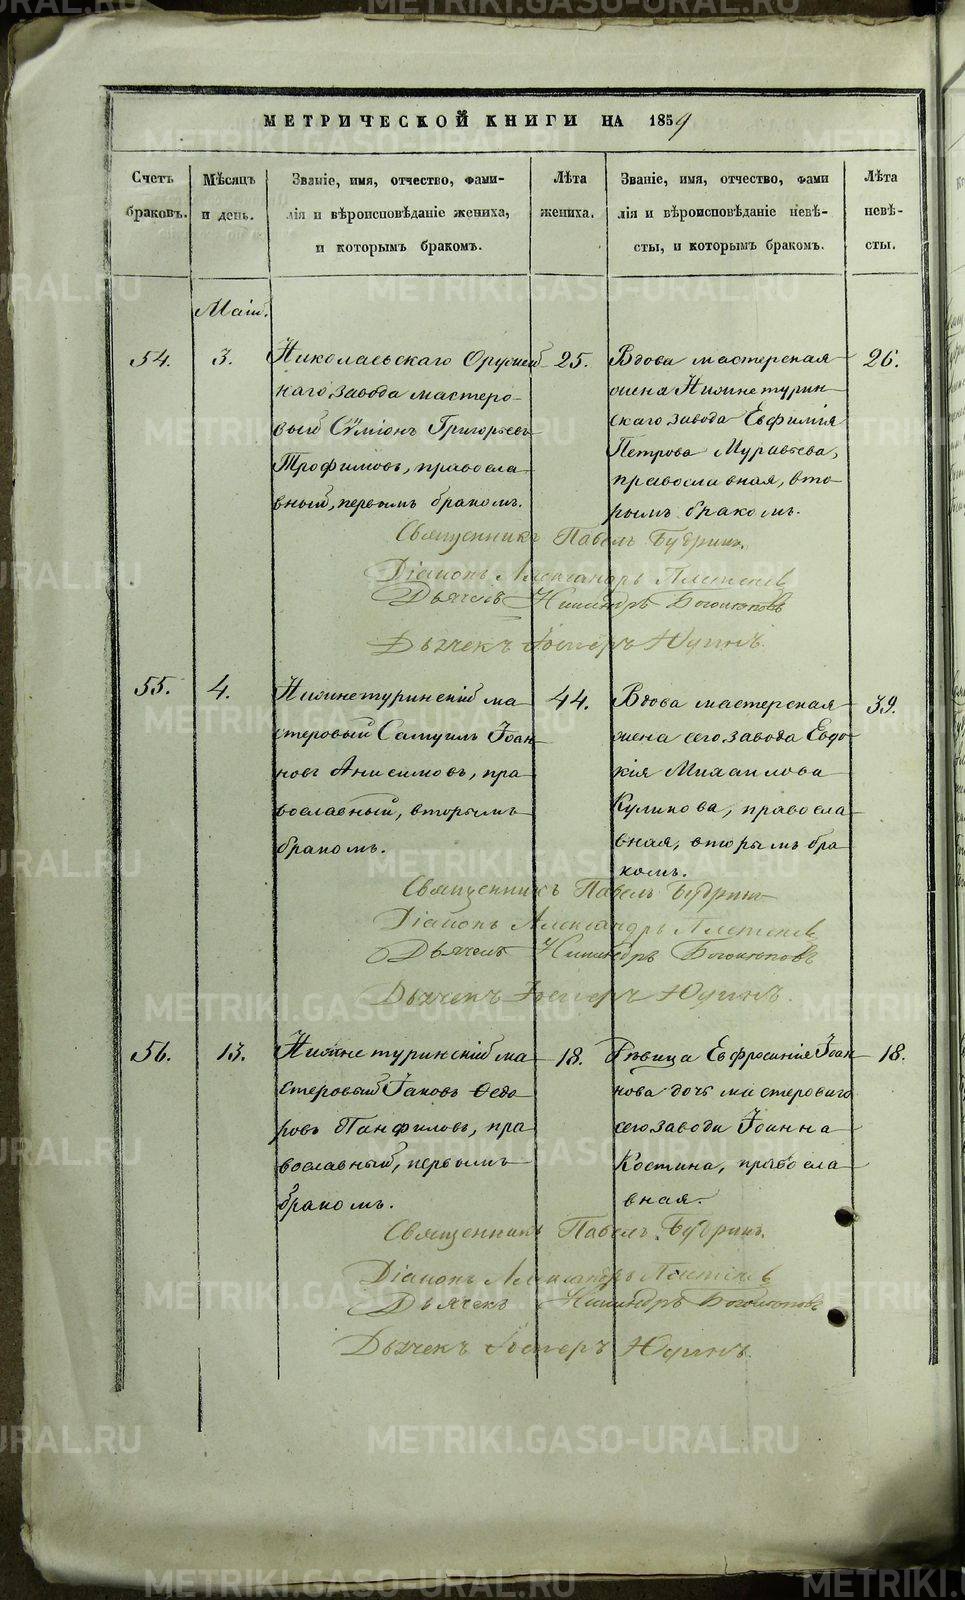 МЕТРИЧЕСКОЙ КНИГИ НА 1859
Счетъ браковъ.
Мѣсяцъ и день.
Званіе, имя, отчество, фами-
лія и вѣроисповѣданіе жениха,
и которымъ бракомъ.
Лѣта жениха.
Званіе, имя, отчество, фами
лія и вѣроисповѣданіе невѣ-
сты, и которымъ бракомъ.
Лѣта невѣ-
сты.
54.
3.
Николаевскаго Оружей
наго завода мастеро-
вый Сѵмеонъ Григорьевъ
Трофимовъ, правосла
вный, первымъ бракомъ.
25.
Вдова мастерская
жена Нижнетурин-
скаго завода Евфимія
Петрова Муравьева,
православная, вто-
рымъ бракомъ.
26.
Священникъ Павелъ Будринъ.
Діаконъ Александръ
Дьячекъ
Дьячекъ Юдинъ.
55.
4.
Нижнетуринскій ма
стеровый Самуилъ Іоан
новъ Анисимовъ, пра
вославный, вторымъ
бракомъ.
44.
Вдова мастерская
жена сего завода Евдо
кія Михаилова
Куликова, правосла
вная, вторымъ бра
комъ.
39.
Священникъ Павелъ Будринъ
Діаконъ Александръ
Дьячекъ
Дьячекъ Юдинъ.
56.
13.
Нижнетуринскій ма
стеровый Іаковъ Ѳедо
ровъ Панфиловъ, пра
вославный, первымъ
бракомъ.
18.
Дѣвица Евфросинія Іоан
нова дочь мастероваго
сего завода Іоанна
Костина, правосла
вная.
18.
Священникъ Павелъ Будринъ.
Діаконъ Александръ
Дьячекъ
Дьячекъ Юдинъ.
METRIKI.GASO-URAL.RU